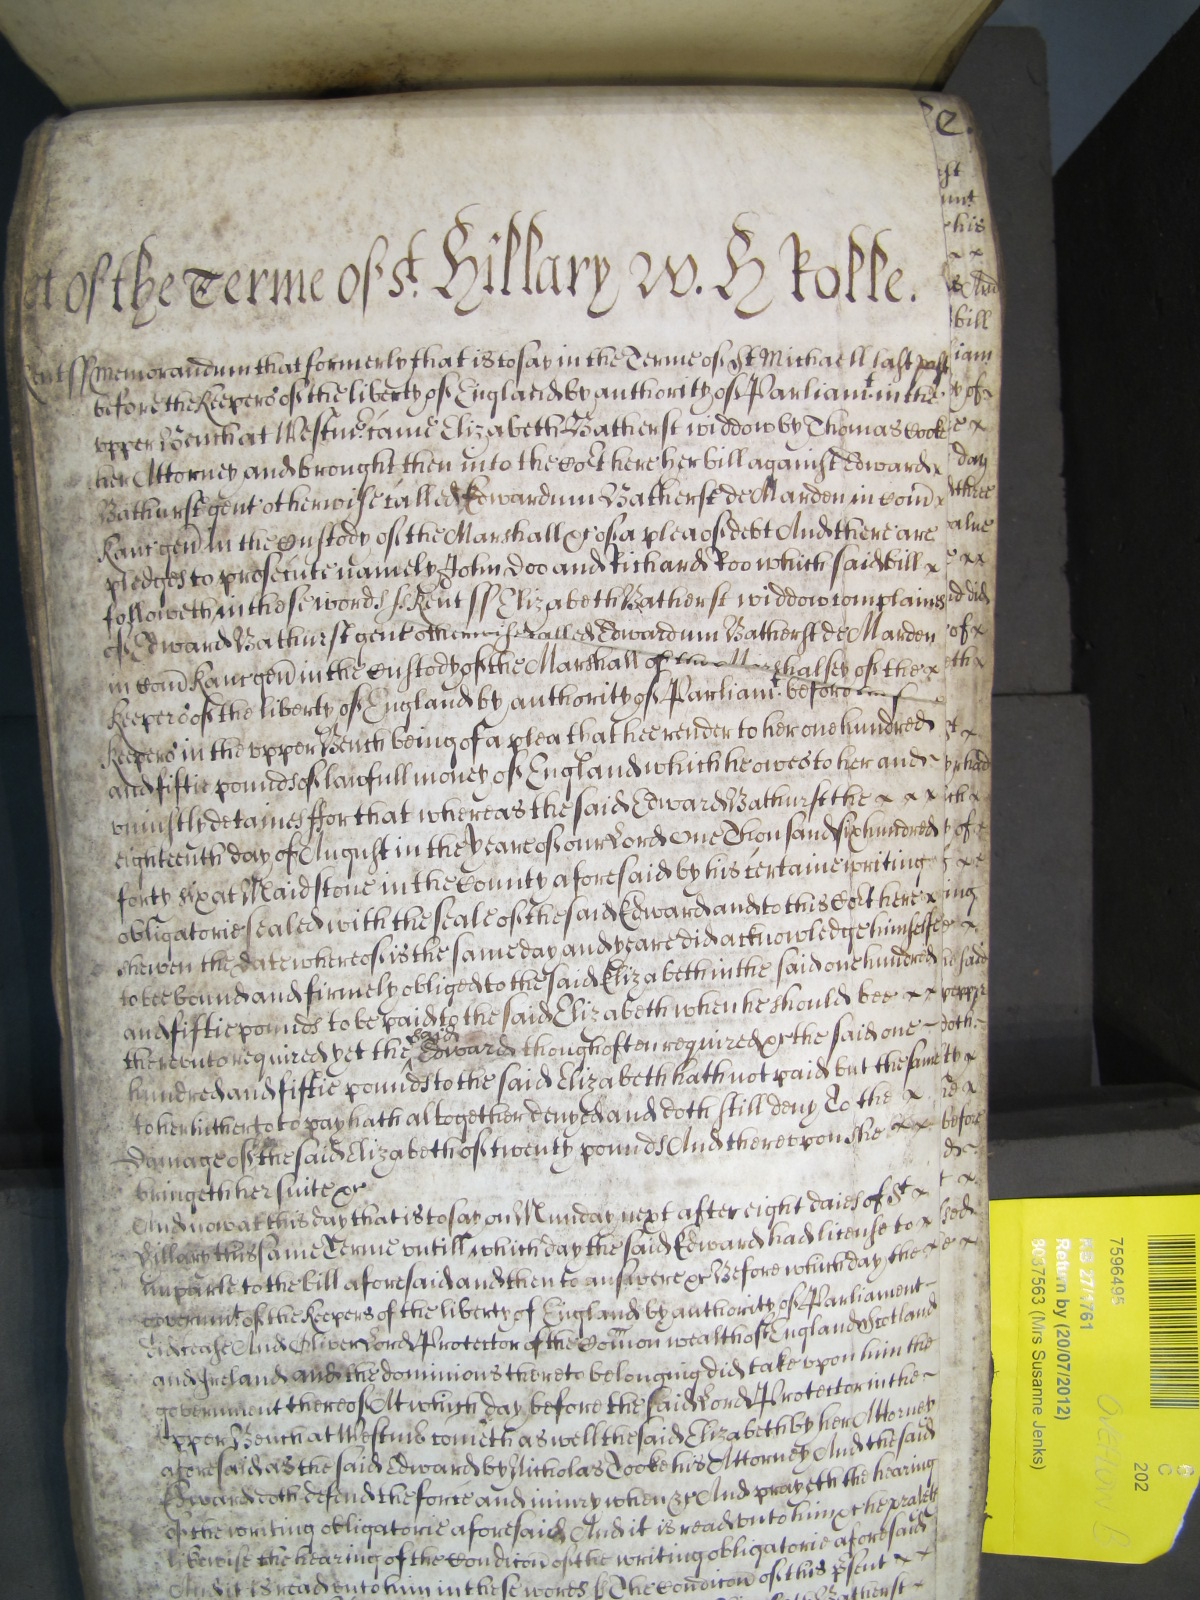 et of the Terme of St. Hillary W. H Rolle.
Kent ss Memorandum that formerly that is to say in the Terme of St Michaell last past
before the Keepers of the liberty of England by authority of Parliamt. in the
upper Bench at Westmr. came Elizabeth Batherst widdow by Thomas Cooke
her Attorney and brought then into the Cort here her bill against Edward x
Bathurst gent otherwise called Edwardum Batherst de Marden in Com x
Kanc gen in the Custody of the Marshall &c of a plea of debt And there are
pledges to prosecute namely John Doo and Richard Roo which said bill x
followeth in these words ss Kent ss Elizabeth Batherst widdow complaines
of Edward Bathurst gent otherwise called Edwardum Batherst de Marden
in Com Kanc gen in the Custody of the Marshall of the Marshalsey of the x
Keepers of the liberty of England by authority of Parliamt. before
Keepers in the upper Bench being of a plea that hee render to her one hundred
and fiftie pounds of lawfull money of England which he owes to her and
uniustly detaines ffor that whereas the said Edward Bathurst the x x x
eighteenth day of August in the yeare of our Lord One Thousand six hundred
forty six at Maidstone in the County aforesaid by his certaine writing
obligatorie sealed with the seale of the said Edward and to this Cort here x
shewen the date whereof is the same day and yeare did acknowledge himselfe
to bee bound and firmely obliged to the said Elizabeth in the said one hundred
and fiftie pounds to be paid to the said Elizabeth when he should bee x x
thereunto required yet the said Edward though often required &c the said one
hundred and fiftie pounds to the said Elizabeth hath not paid but the same
to her hitherto to pay hath altogether denyed and doth still deny To the x
damage of the said Elizabeth of twenty pounds And thereupon shee x x
bringeth her suite &c
And now at this day that is to say on Munday next after eight daies of St x
Hillary this same Terme untill which day the said Edward had license to x
imparle to the bill aforesaid and then to answere &c Before which day the x
governmt. of the Keepers of the liberty of England by authority of Parliament
did cease And Oliver Lord Protector of the Comon wealth of England Scotland
and Ireland and the dominions thereto belonging did take upon him the
government thereof At which day before the said Lord Protector in the
upper Bench at Westmr cometh as well the said Elizabeth by her Attorney
aforesaid as the said Edward by Nicholas Cooke his Attorney And the said
Edward doth defend the force and iniury when &c And prayeth the hearing
of the writing obligatorie aforesaid And it is read unto him &c he prayeth
likewise the hearing of the Condicon of the writing obligatorie aforesaid
And it is read unto him in these words ss The Condicon of this psent x x
Batherst
7596495
KB 27/1761
Return by (20/07/2012)
8037563 (Mrs Susanne Jenks)
C
202